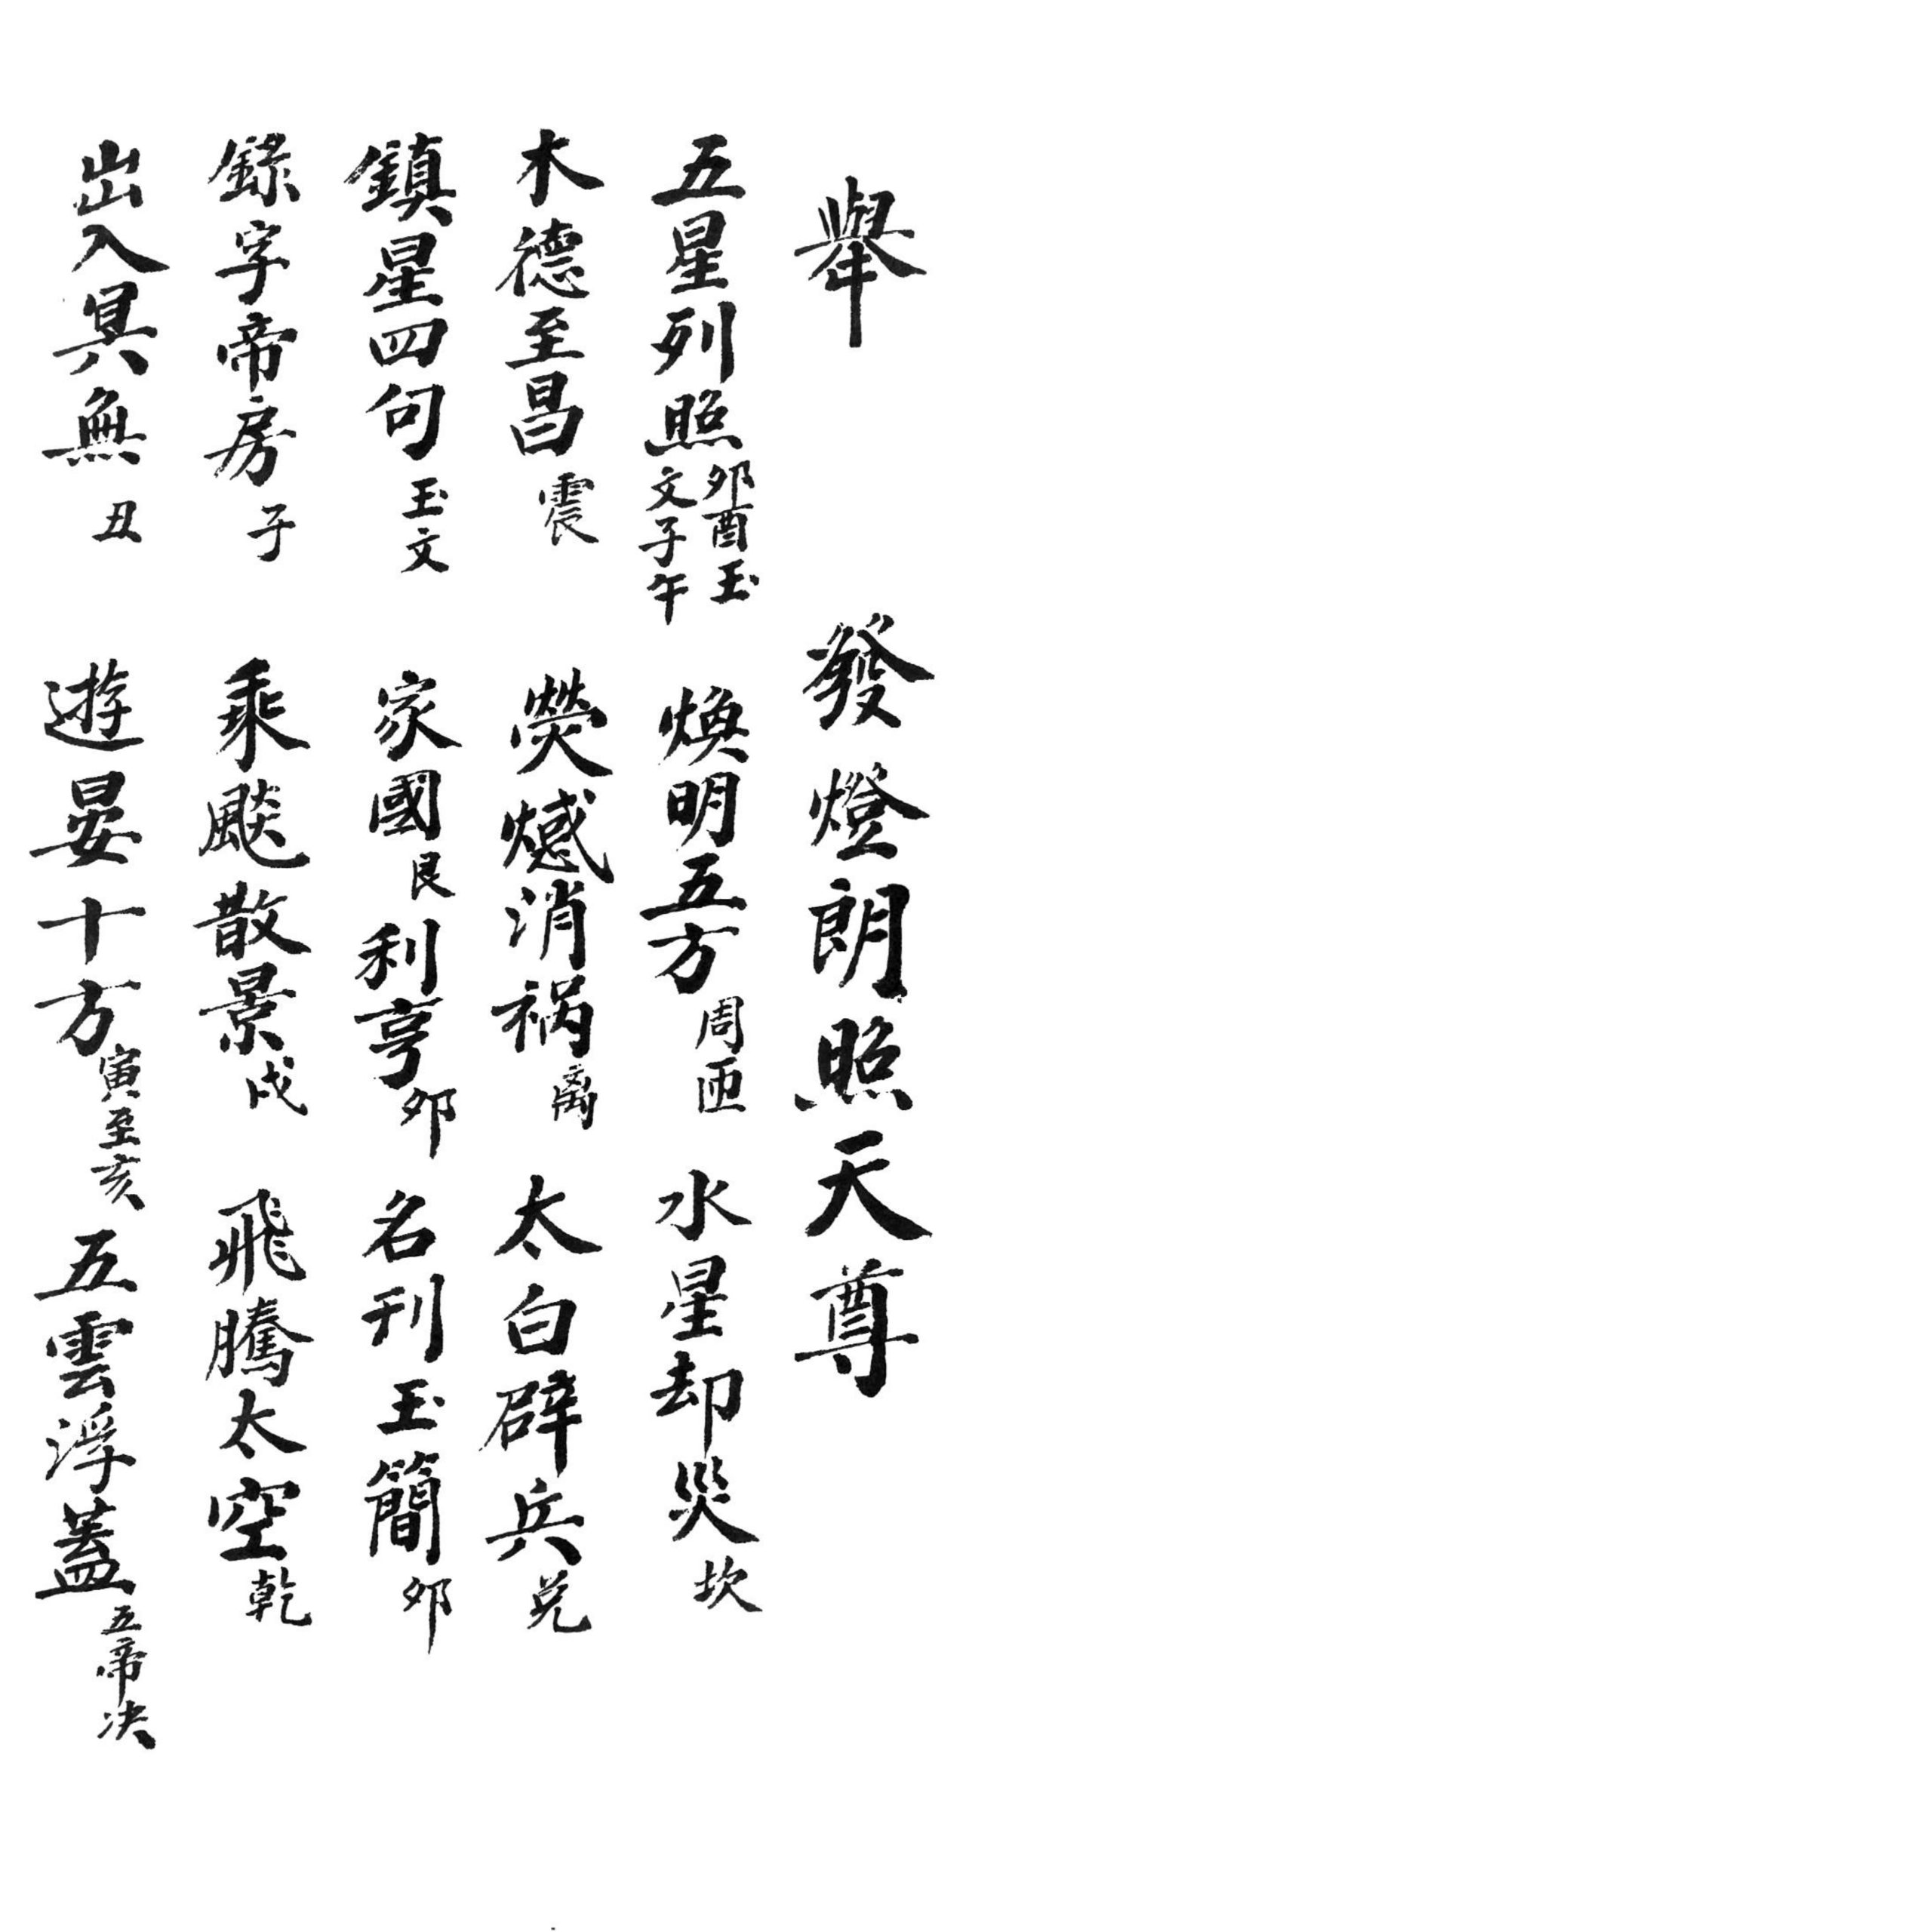 舉 發燈朗照天尊
五星列照 卯酉玉文子午 煥明五方 周匝 水星却災 坎
木德至昌 震 熒憾消禍 离 太白辟兵 兑
鎮星四句 玉文 家國 艮 利亨 卯 名刊玉簡 卯
錄字帝房 子 乘飈散景 戌 飛騰太空 乾
出入冥無 丑 遊晏十方 寅至亥 五雲浮蓋 五帝决